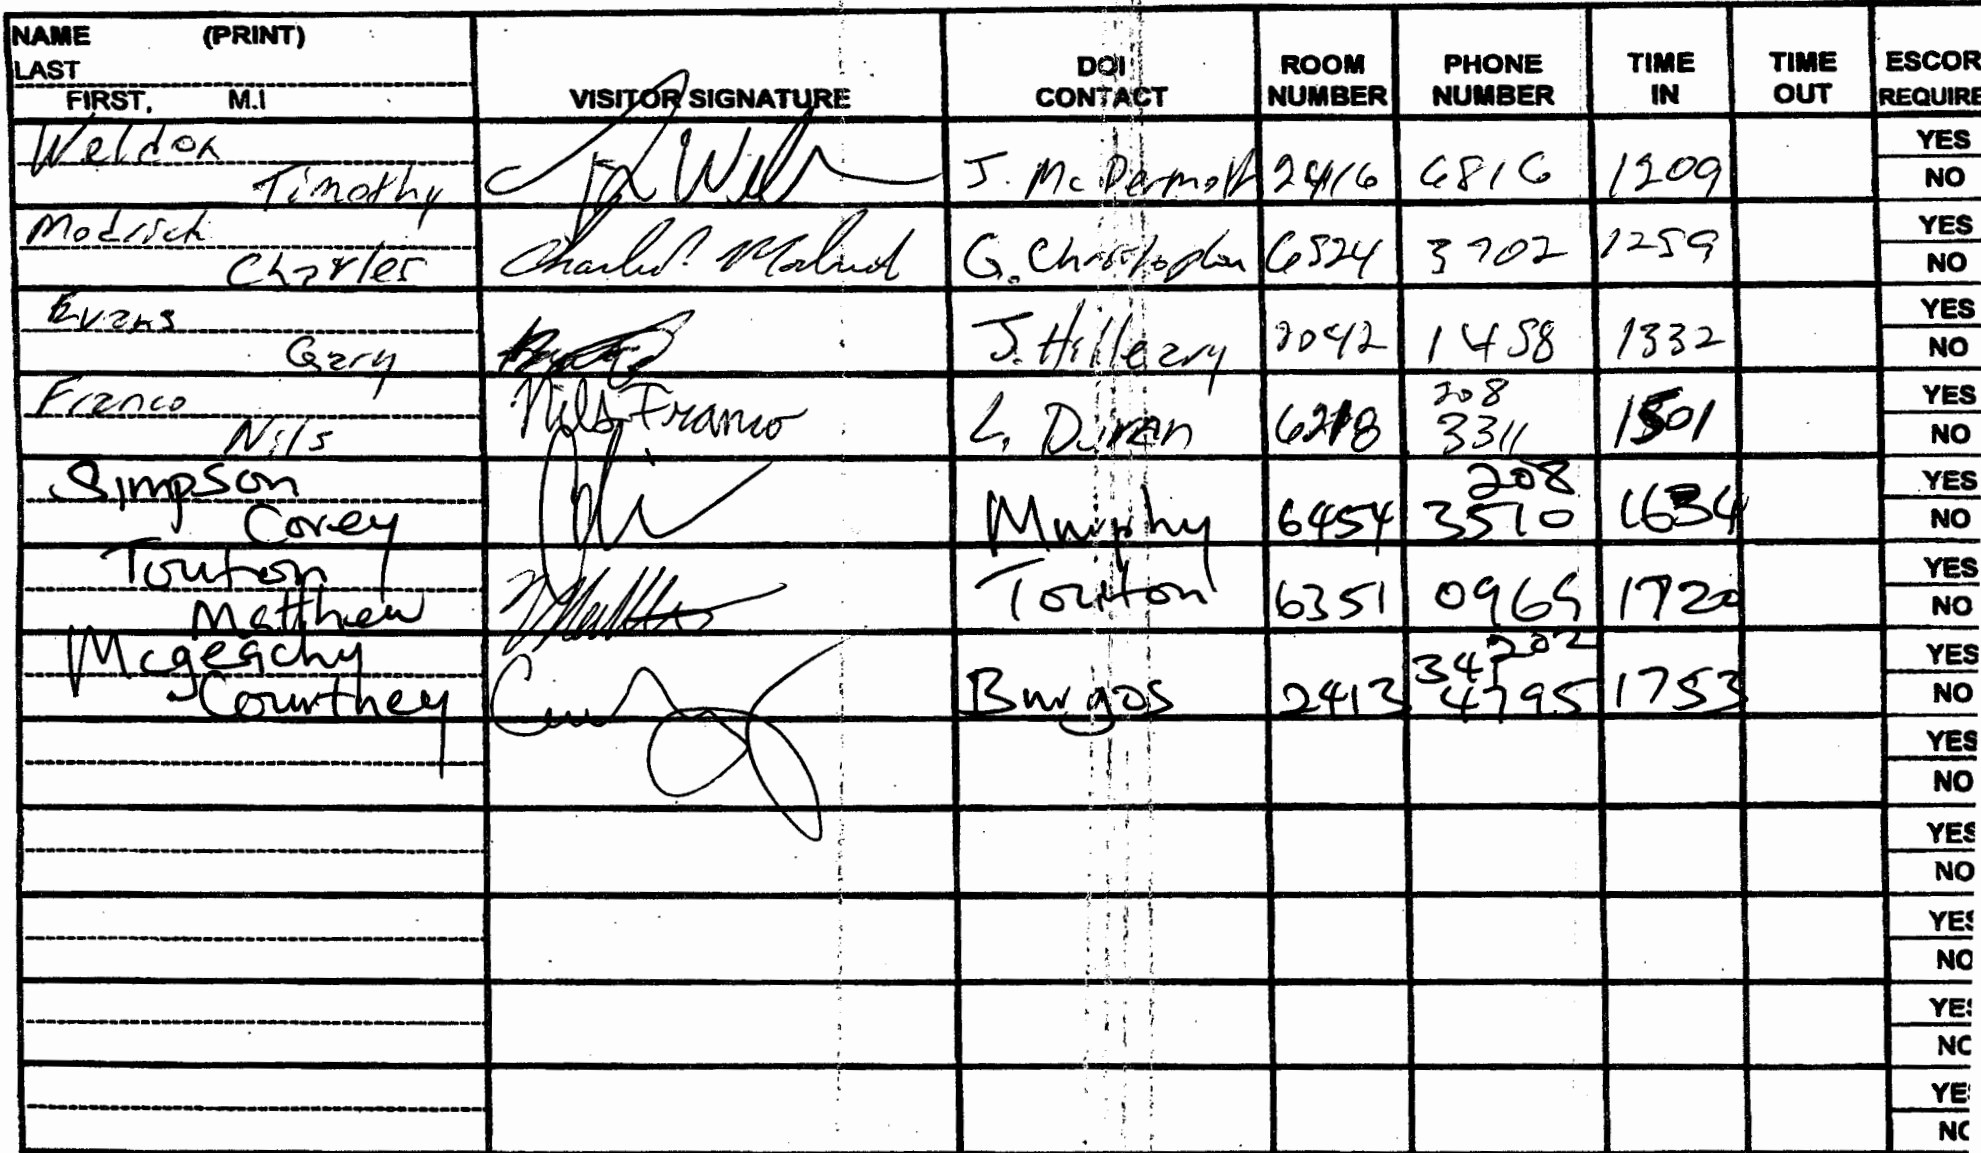 NAME (PRINT)
LAST
FIRST, M.I
VISITOR SIGNATURE
DOI CONTACT
ROOM NUMBER
PHONE NUMBER
TIME IN
TIME OUT
ESCOR
REQUIRE
Weldon
Timothy
J. McDermott 2416 6816 1209
YES
NO
Modrich
Charles
G. Christopher 6524 3702 1259
YES
NO
Evans
Gary
J. Hilleary 2042 1458 1332
YES
NO
Franco
Nils
Nils Franco
L. Duran 6218 208 3311 1501
YES
NO
Simpson
Corey
Murphy 6454 208 3510 1634
YES
NO
Touton
Matthew
Touton 6351 0965 1720
YES
NO
Mcgeachy
Courthey
Burgos 2413 202 341 4795 1753
YES
NO
YES
NO
YES
NO
YES
NO
YES
NO
YES
NO